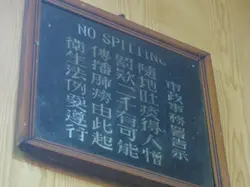 NO SPITTING
市政事務署告示
隨地吐痰得人憎
罰欵二千有可能
傳播肺癆由此起
衞生法例要遵行